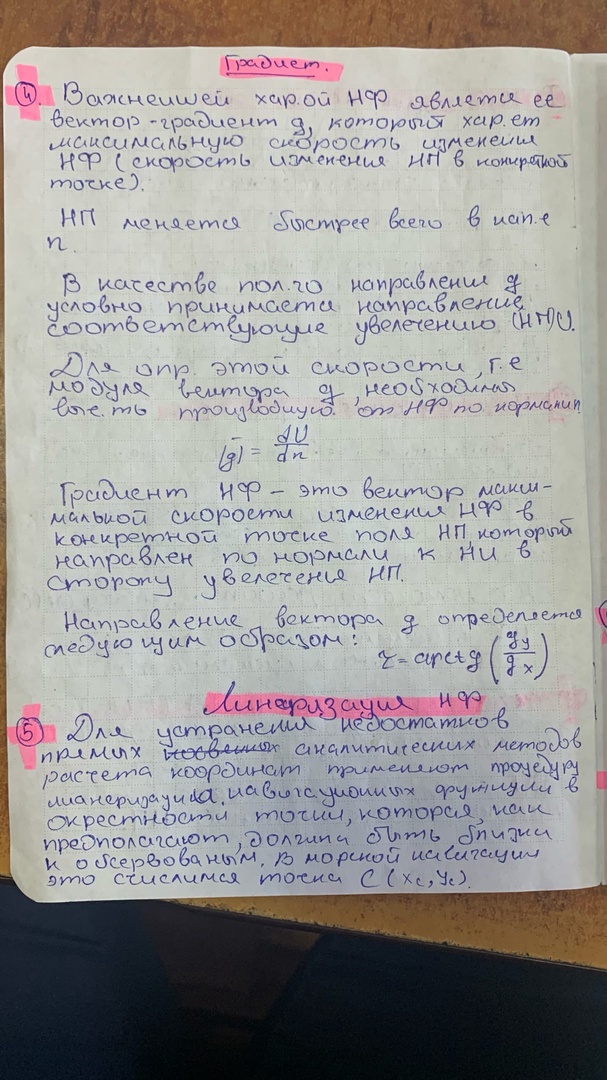 Градиет.
④. Важнеишей хар.ой НФ является её
вектор-градиент g, который хар.ет
максимальную скорость изменения
НФ (скорость изменения НП в конкретной
точке).
НП меняется быстрее всего в нап.е
n.
В качестве пол.го направления g
условно принимается направление,
соответствующие увелечению (НП)U.
Для опр. этой скорости, т.е
модуля вектора g, необходимы
выс.ть производную от НФ по нормали n.
|g̅| = dU/dn
Градиент НФ - это вектор макси-
мальной скорости изменения НФ в
конкретной точке поля НП, который
направлен по нормали к НИ в
сторону увелечения НП.
Направление вектора g определяется
следующим образом:
τ = arctg (gy/gx)
Линаризация НФ
⑤ Для устранения недостатков
прямых косвенных аналитических методов
расчета координат применяют процедуру
лианеризации навигационных функции в
окрестности точки, которая, как
предполагают, должна быть близки
к обсервованым. В морской навигации
это счислимая точка С (xc, yc).